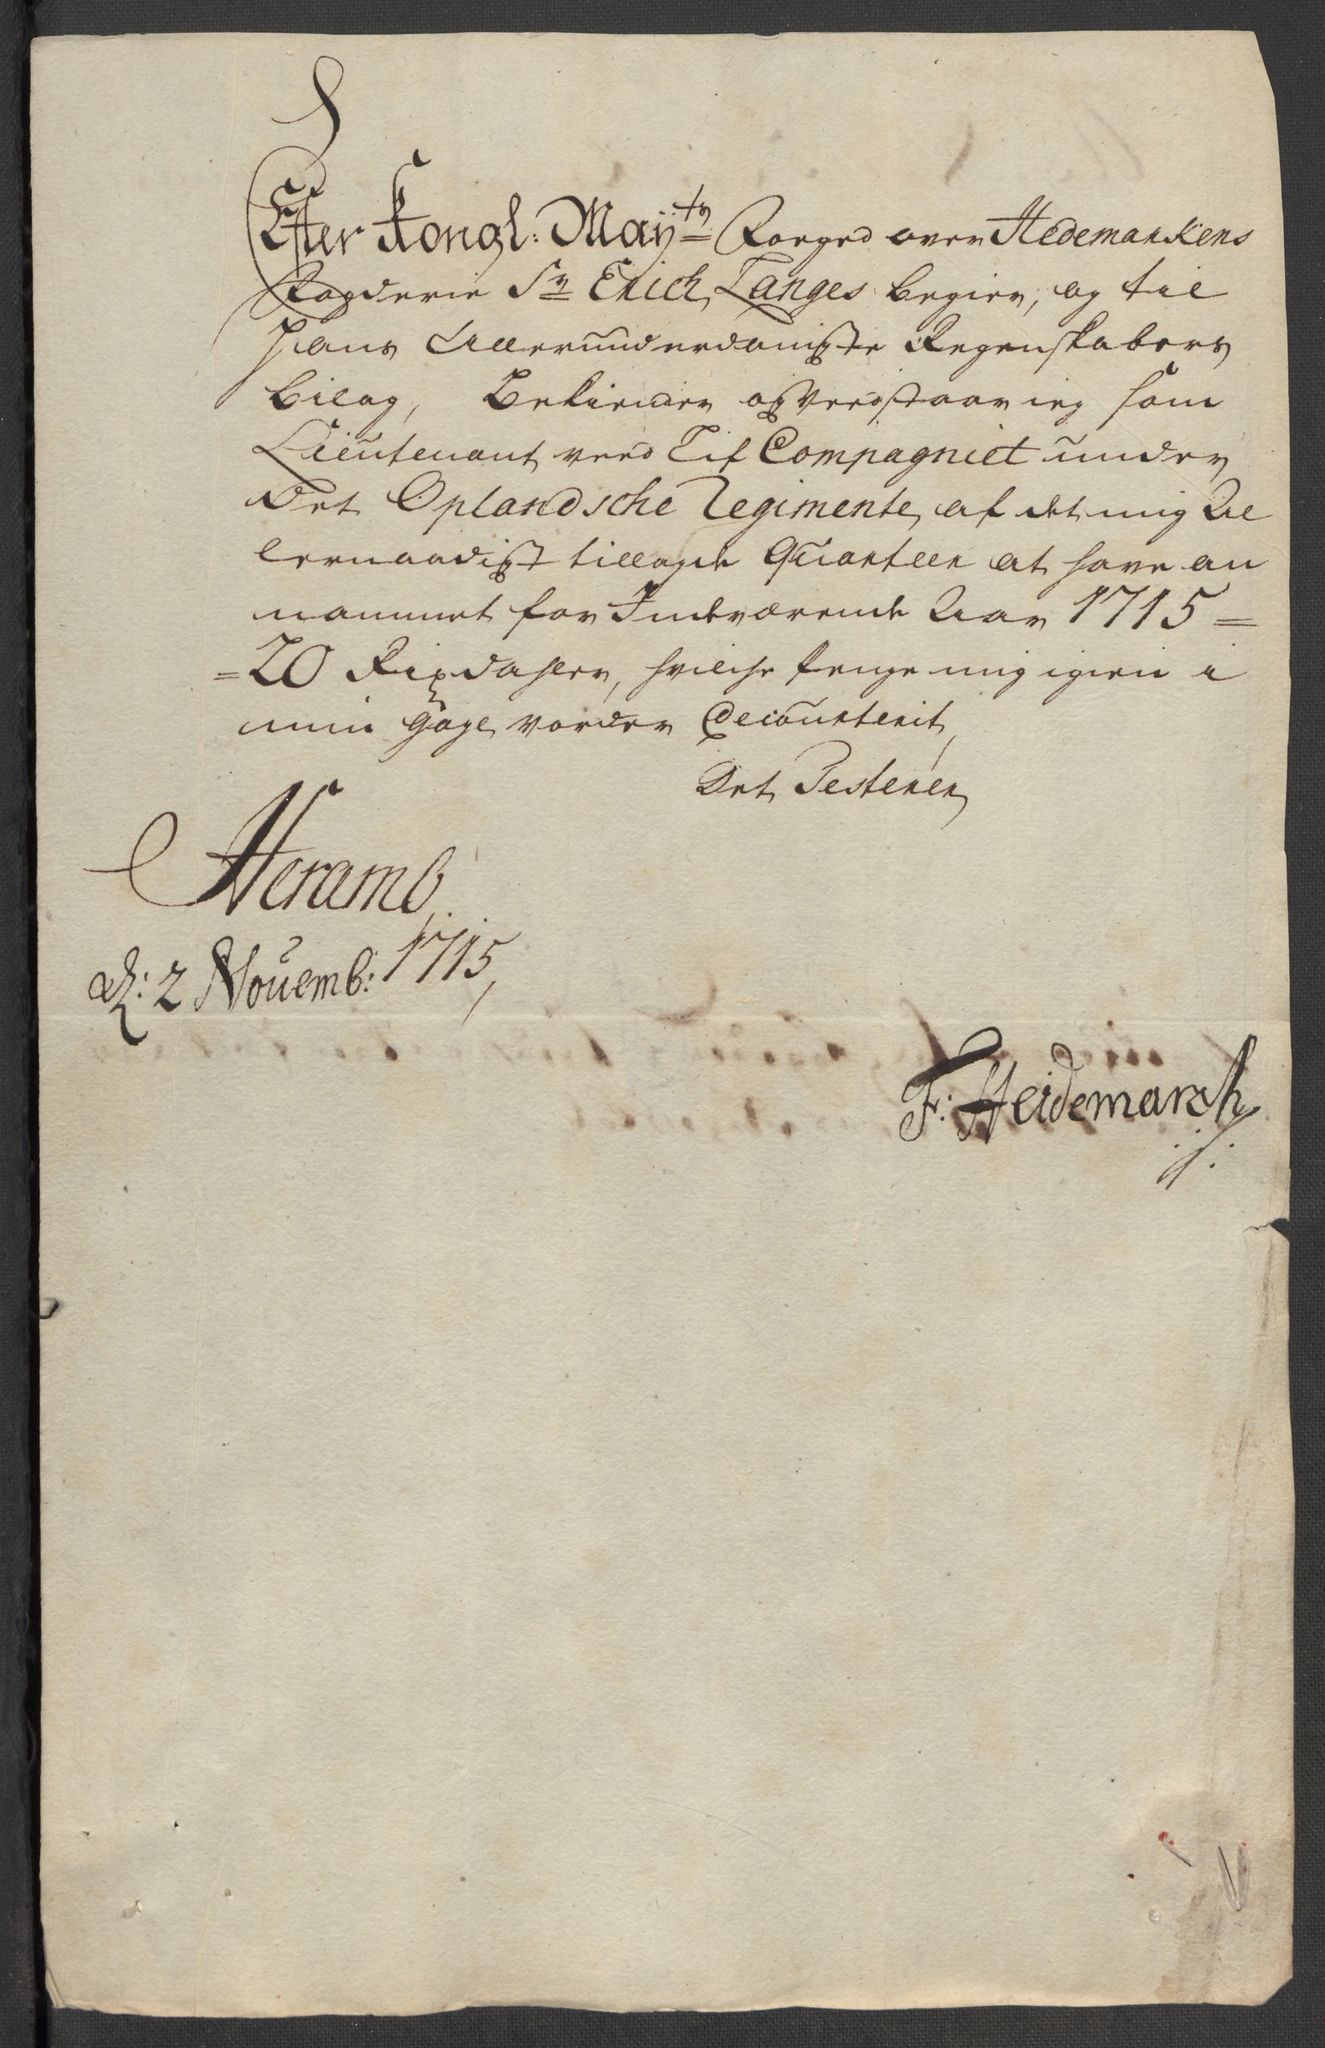 Efter Kongl: Maÿts Foeged over Hedemarkens
Fogderie Sr Erich Langes begier, og til
hans Allerunderdanigste Regenskabers
bilag, Bekiender og Veedstaar ieg som
Lieutenant veed Lif Compagniet under
Det Oplandsche Regimente, af det mig Al
lernaadigst tillagde Quarteer at have an
nammet for Indeværende Aar 1715 =
= 20 Rixdahler, hvilche penge mig igien i
min gage vorder decourterit,
Det Testerer
Heramb,
d: 2 Nouemb: 1715,
F: Heidemarch